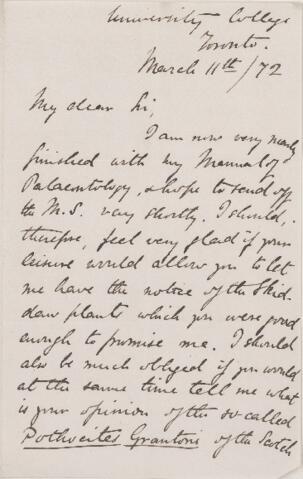 University College
Toronto.
March 11th/72
My dear Sir,
I am now very nearly
finished with my Manual of
Palaeontology, & hope to send off
the M.S. very shortly. I should,
therefore, feel very glad if your
leisure would allow you to let
me have the notice of the Skid-
daw plants which you were good
enough to promise me. I should
also be much obliged if you would
at the same time tell me what
is your opinion of the so-called
Pothocites Grantoni of the Scotch